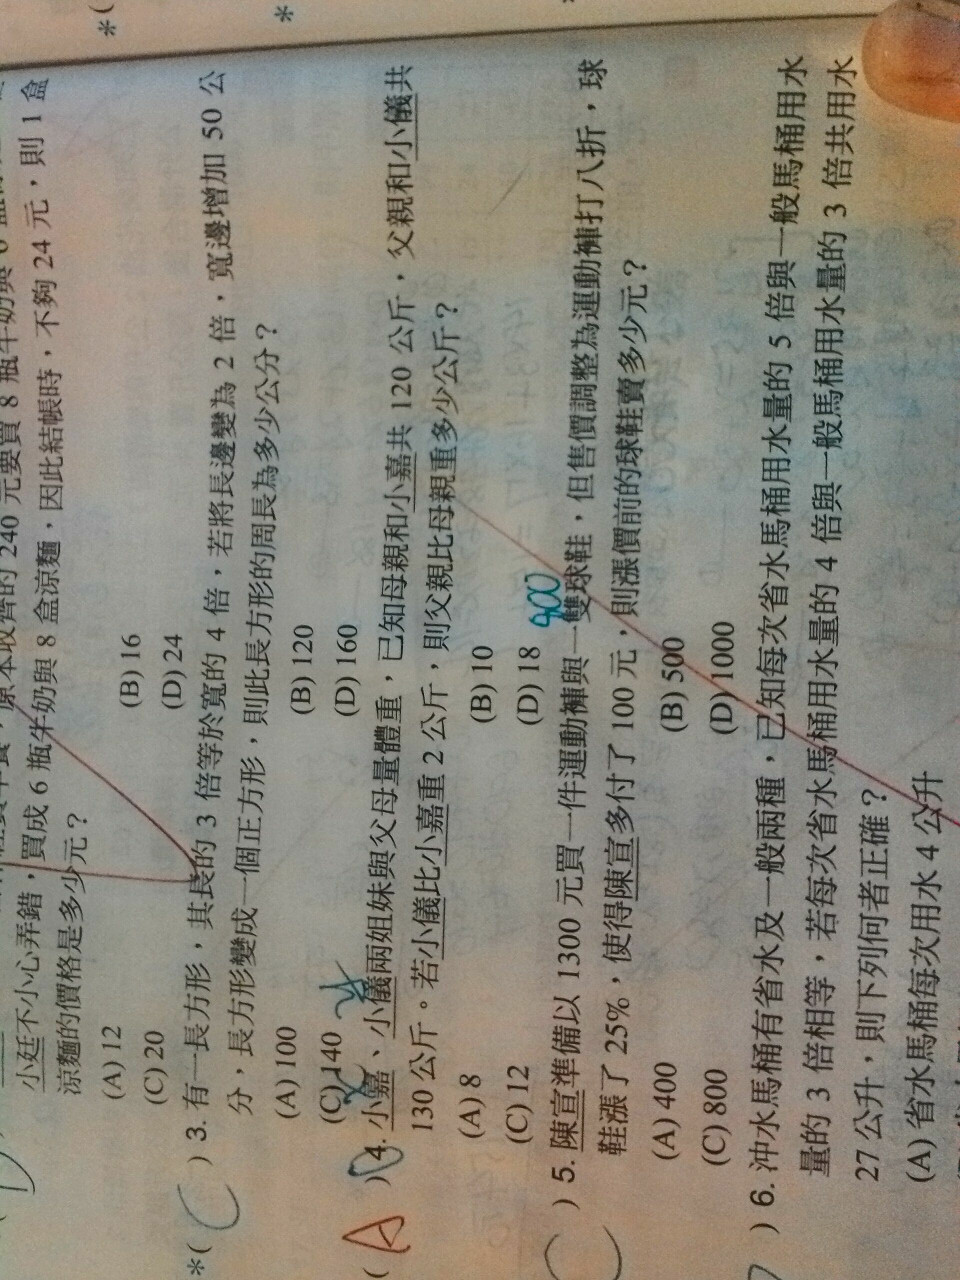 *(
*(
240 元要買 8 瓶牛奶與 6
小廷不小心弄錯，買成 6 瓶牛奶與 8 盒涼麵，因此結帳時，不夠 24 元，則 1 盒
涼麵的價格是多少元？
(A) 12 (B) 16
(C) 20 (D) 24
*( C ) 3. 有一長方形，其長的 3 倍等於寬的 4 倍，若將長邊變為 2 倍，寬邊增加 50 公
分，長方形變成一個正方形，則此長方形的周長為多少公分？
(A) 100 (B) 120
(C) 140 (D) 160
( A ) 4. 小嘉、小儀兩姐妹與父母量體重，已知母親和小嘉共 120 公斤，父親和小儀共
130 公斤。若小儀比小嘉重 2 公斤，則父親比母親重多少公斤？
(A) 8 (B) 10
(C) 12 (D) 18
( C ) 5. 陳宣準備以 1300 元買一件運動褲與一雙球鞋，但售價調整為運動褲打八折，球
鞋漲了 25%，使得陳宣多付了 100 元，則漲價前的球鞋賣多少元？
(A) 400 (B) 500
(C) 800 (D) 1000
) 6. 沖水馬桶有省水及一般兩種，已知每次省水馬桶用水量的 5 倍與一般馬桶用水
量的 3 倍相等，若每次省水馬桶用水量的 4 倍與一般馬桶用水量的 3 倍共用水
27 公升，則下列何者正確？
(A) 省水馬桶每次用水 4 公升